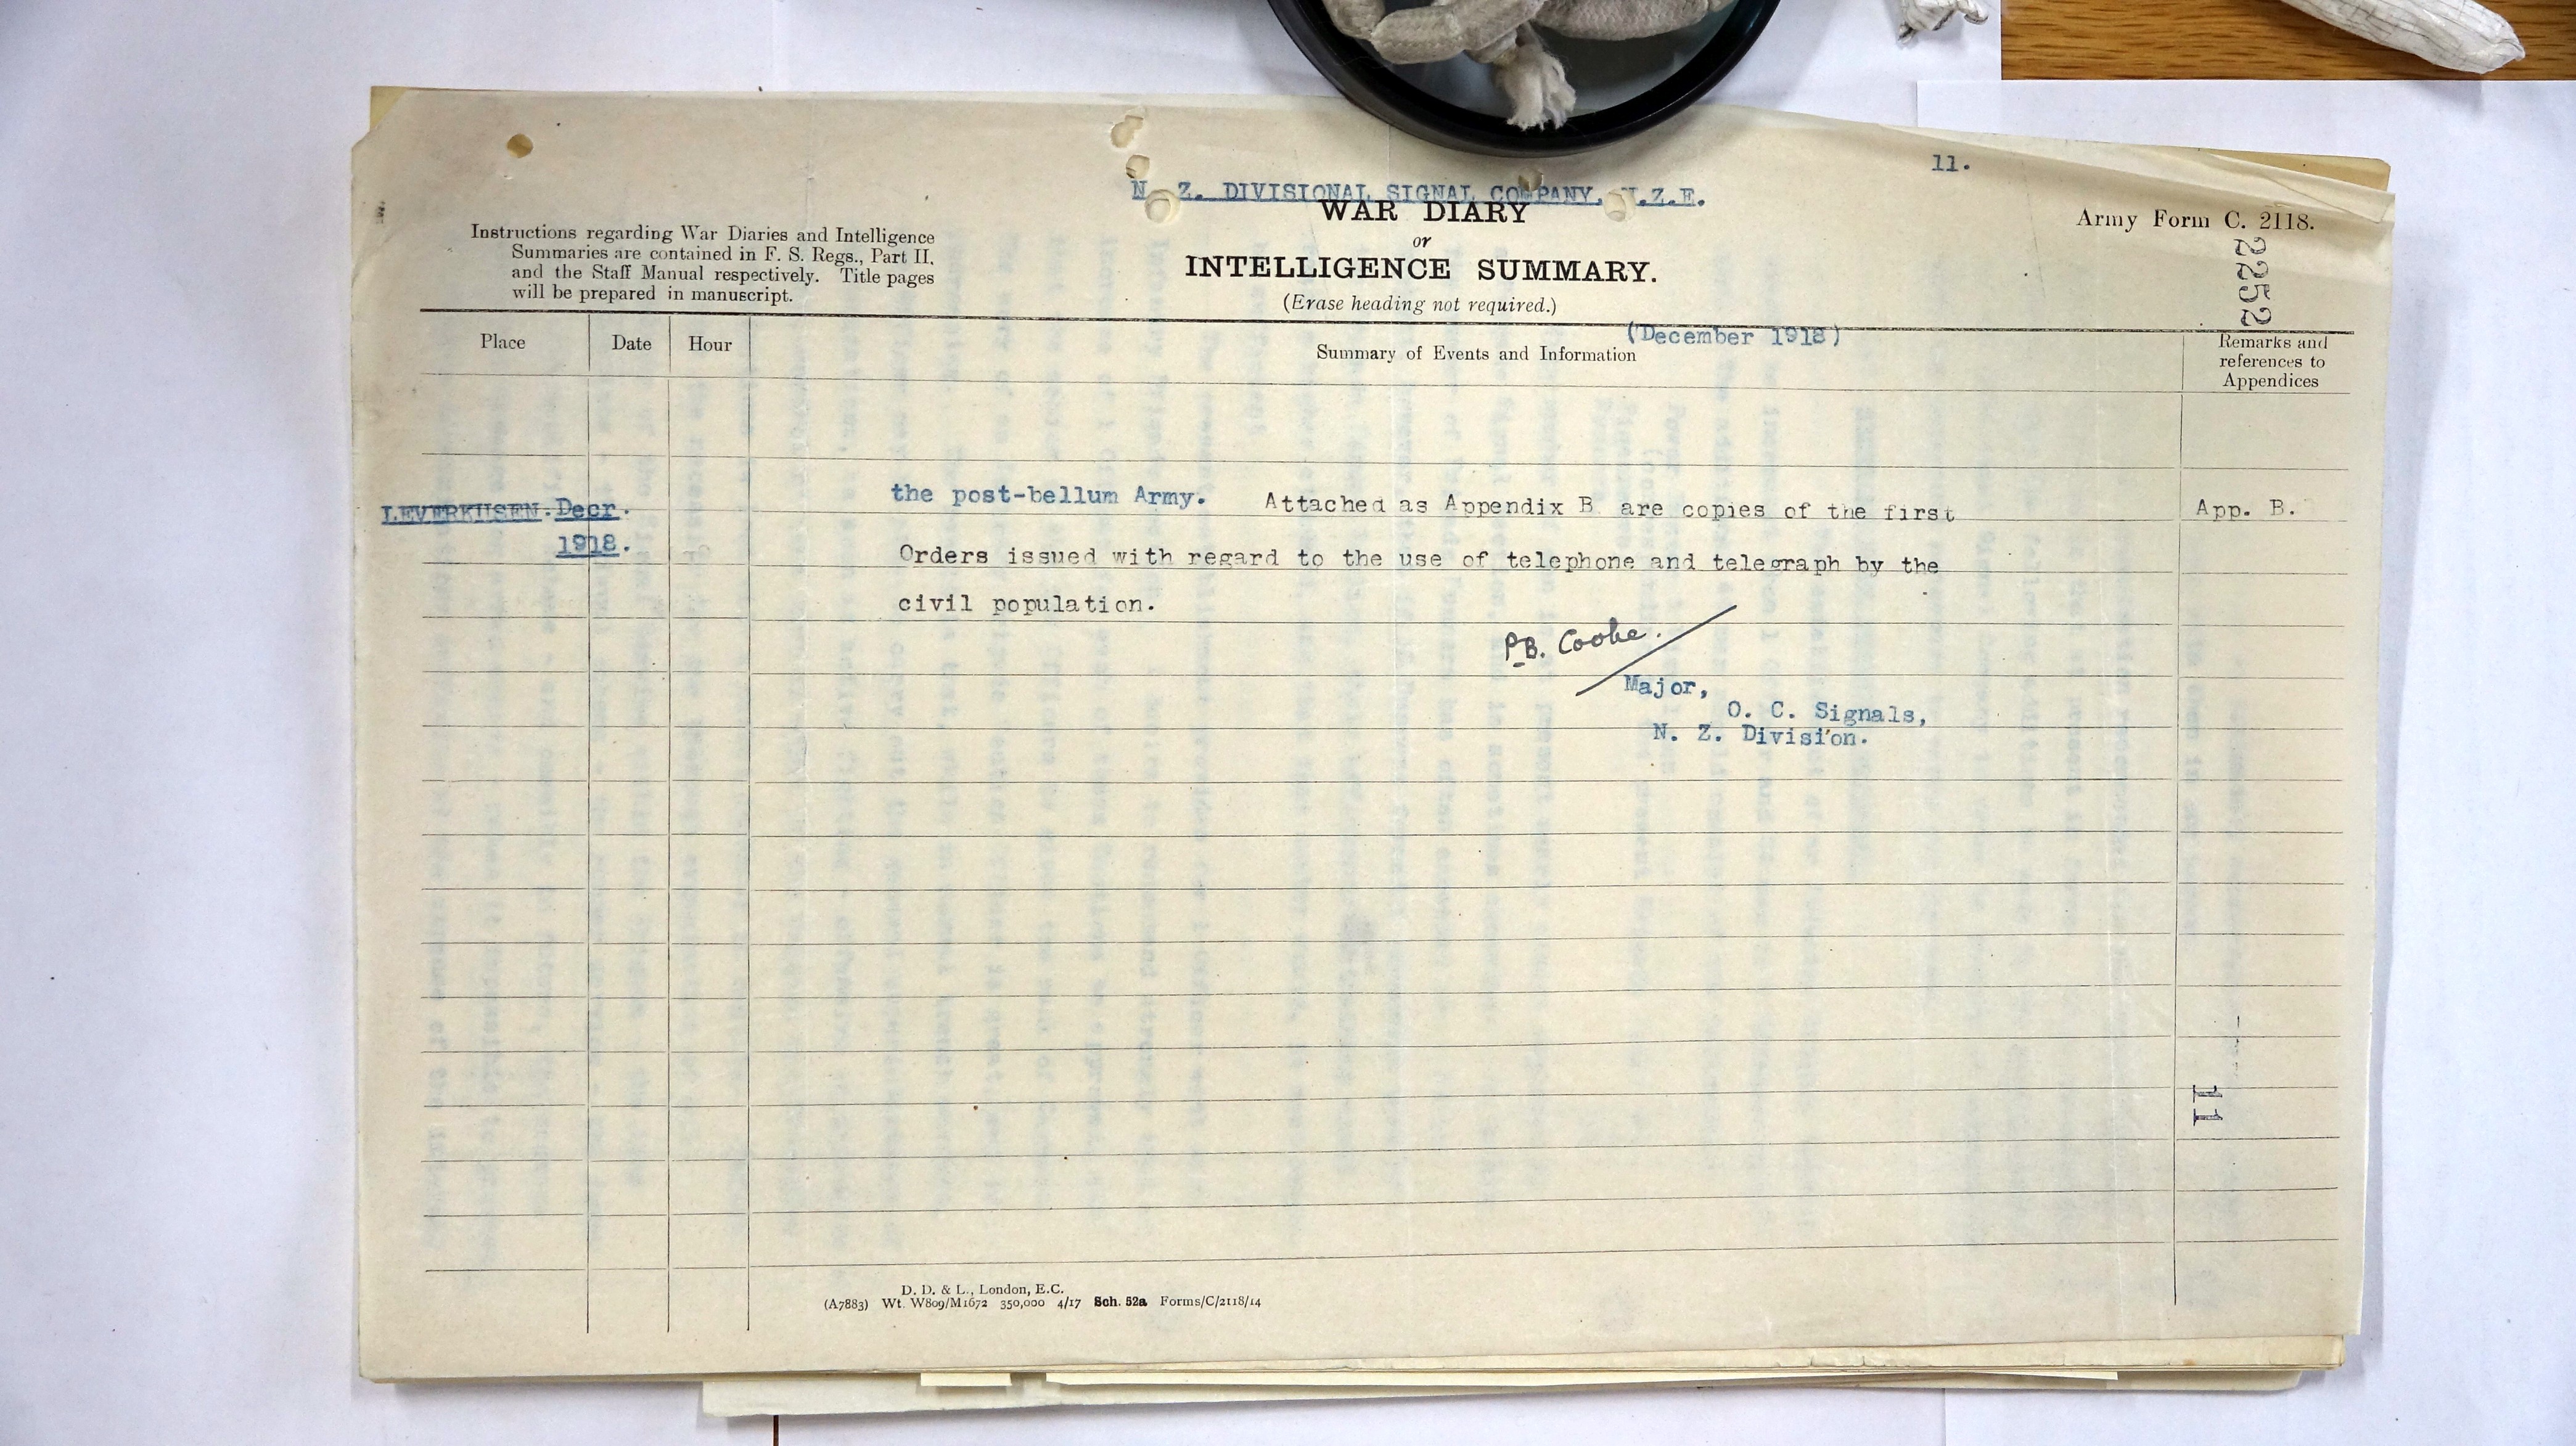 11.
N. Z. DIVISIONAL SIGNAL COMPANY, N.Z.E.
WAR DIARY
or
INTELLIGENCE SUMMARY.
(Erase heading not required.)
Army Form C. 2118.
2252
Instructions regarding War Diaries and Intelligence
Summaries are contained in F. S. Regs., Part II,
and the Staff Manual respectively. Title pages
will be prepared in manuscript.
(December 1918)
Place Date Hour Summary of Events and Information Remarks and
references to
Appendices
LEVERKUSEN. Decr.
1918.
the post-bellum Army. Attached as Appendix B are copies of the first
App. B.
Orders issued with regard to the use of telephone and telegraph by the
civil population.
P.B. Cooke.
Major,
O. C. Signals,
N. Z. Division.
11
D. D. & L., London, E.C.
(A7883) Wt. W809/M1672 350,000 4/17 Sch. 52a Forms/C/2118/14